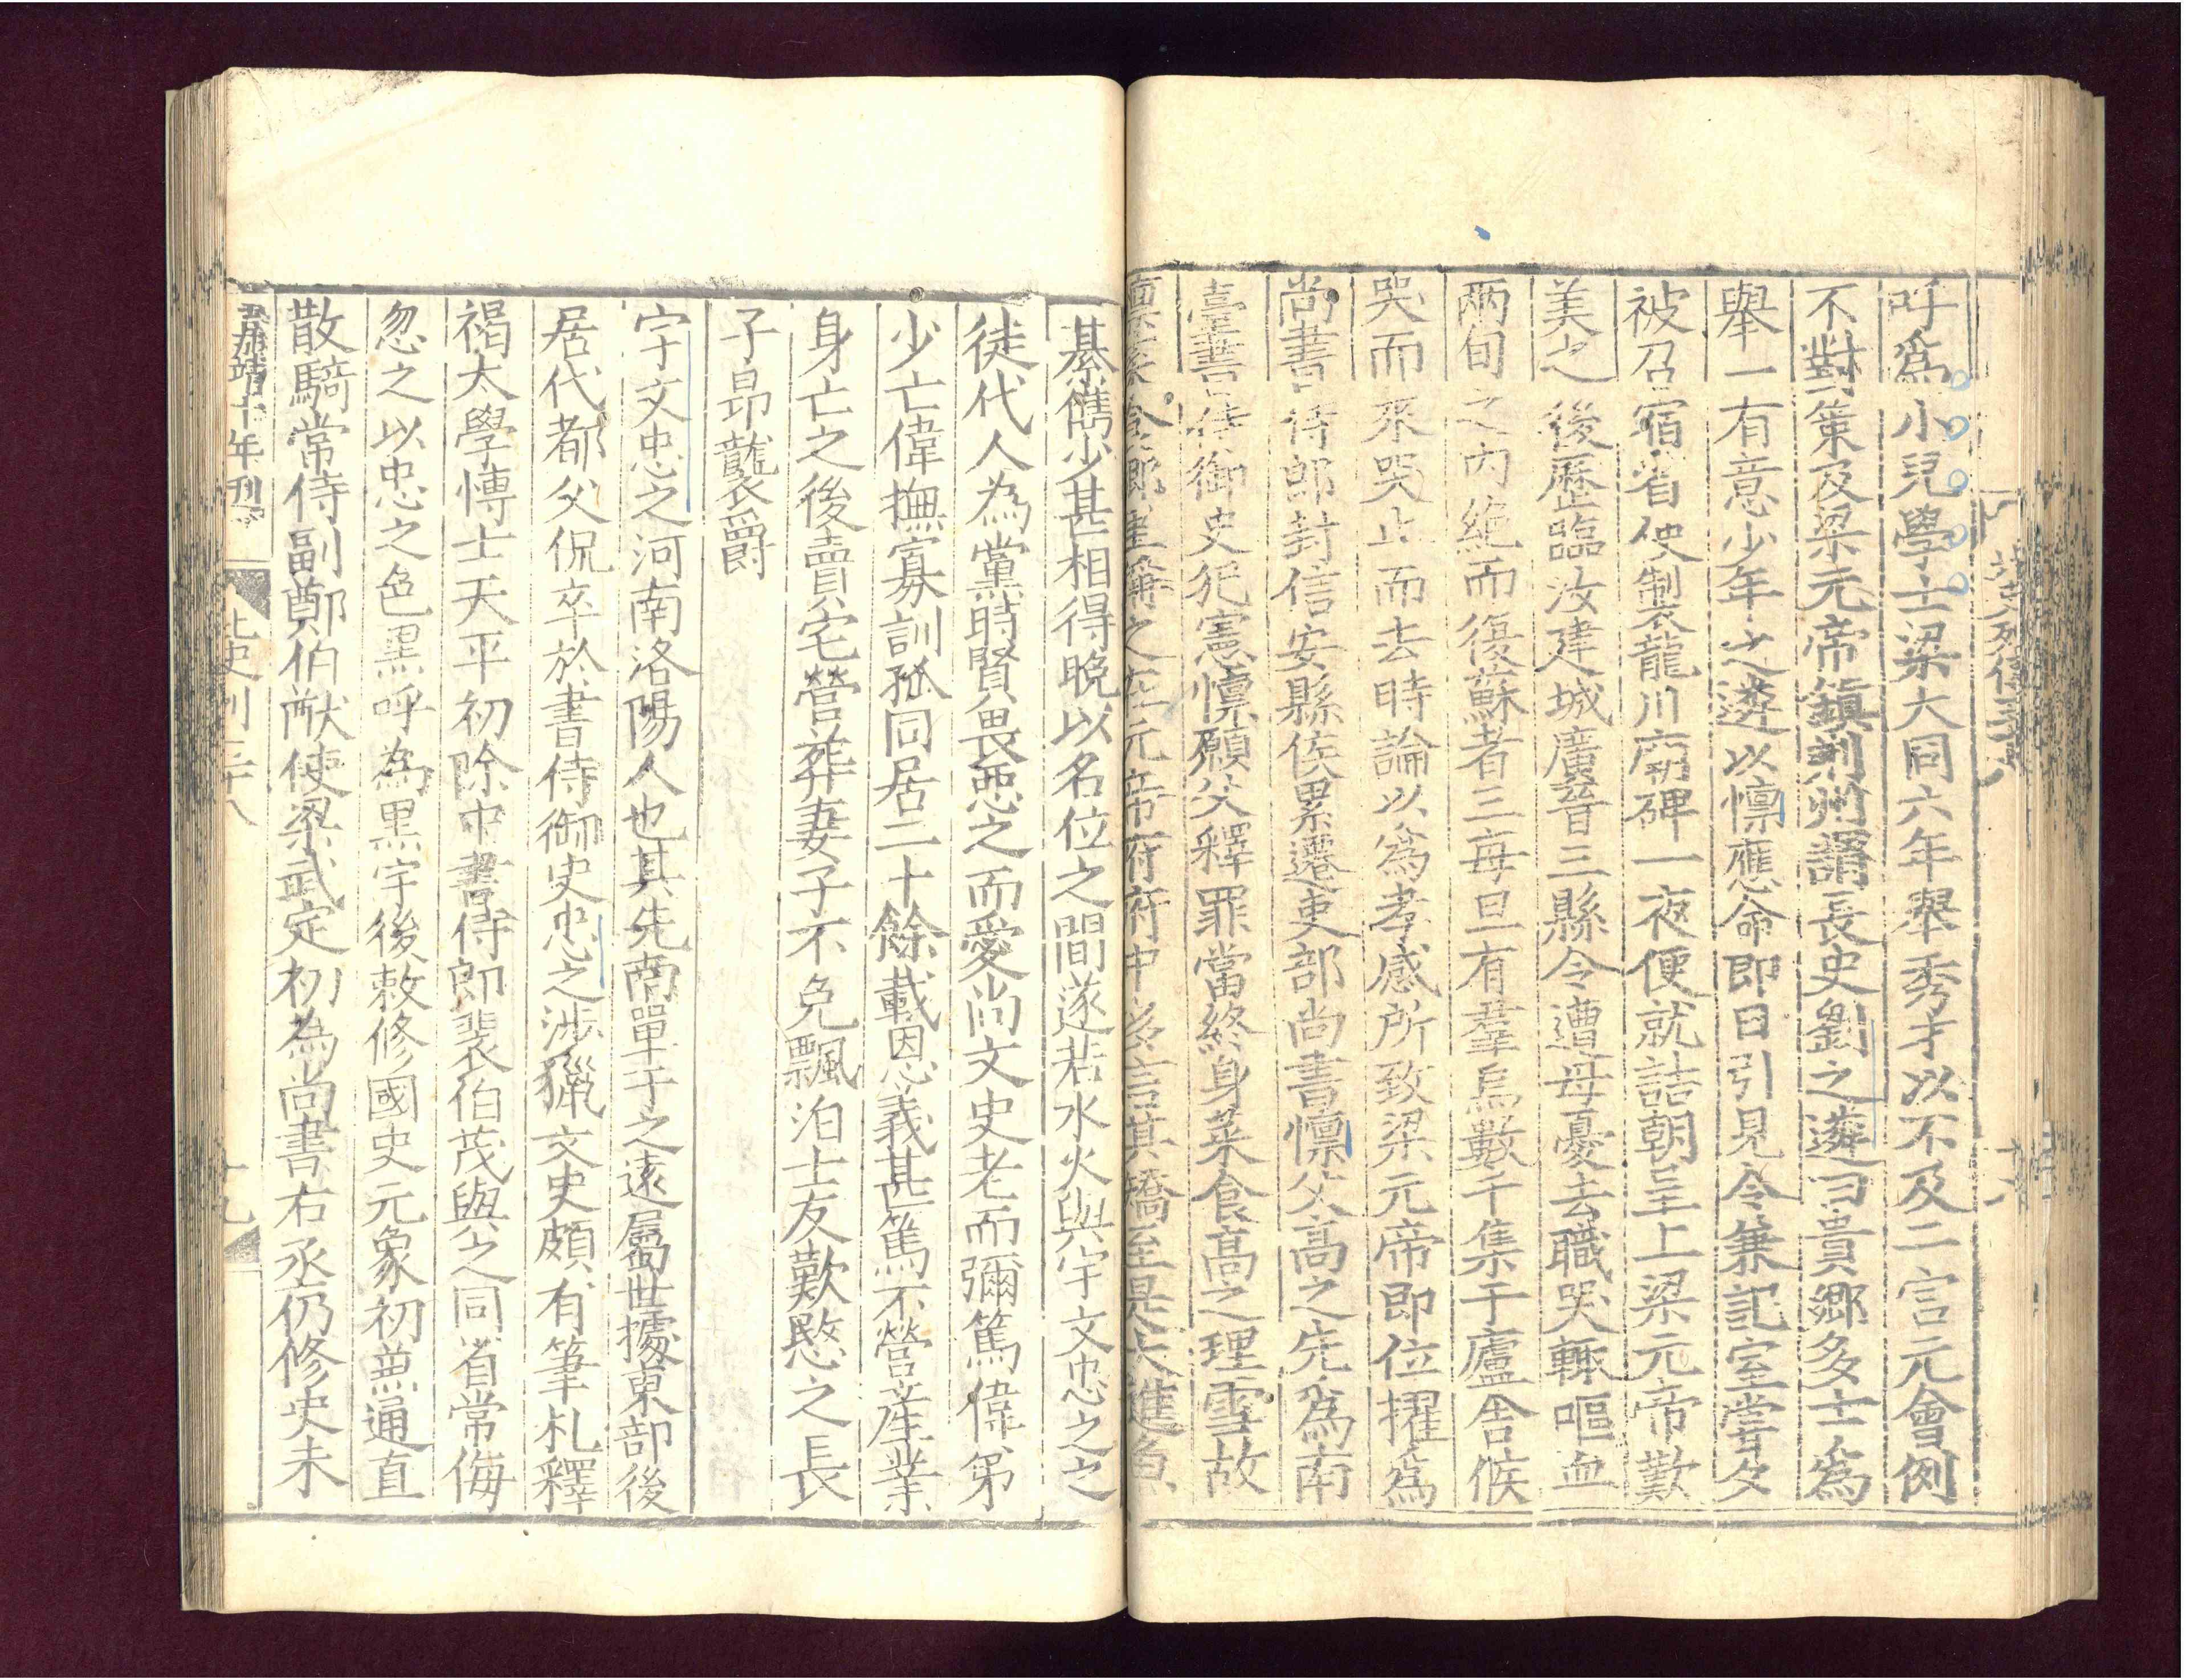 呼為小兒學士梁大同六年舉秀才以不及二宮元會例
不對策及梁元帝鎮荆州謂長史劉之遴曰貴鄉多士為
舉一有意少年之遴以懍應命即日引見令兼記室嘗夕
被召宿省使製龍川廟碑一夜便就詰朝呈上梁元帝歎
美之後歷臨汝建城廣晉三縣令遭母憂去職哭輒嘔血
兩旬之内絶而復蘇者三每旦有羣烏數千集于廬舍候
哭而來哭止而去時論以為孝感所致梁元帝即位擢為
尚書侍郎封信安縣侯累遷吏部尚書懍父高之先為南
臺書侍御史犯憲懍願父釋罪當終身菜食高之理雪故
之在元帝府府中多言其矯至是大進魚
綦儁少甚相得晚以名位之間遂若水火與宇文忠之之
徒代人為黨時賢畏惡之而愛尚文史老而彌篤偉弟
少亡偉撫寡訓孤同居二十餘載恩義甚篤不營産業
身亡之後賣宅營葬妻子不免飄泊士友歎愍之長
子昂襲爵
宇文忠之河南洛陽人也其先南單于之遠屬世據東部後
居代都父侃卒於書侍御史忠之涉獵文史頗有筆札釋
褐太學博士天平初除中書侍郎裴伯茂與之同省常侮
忽之以忠之色黑呼為黑宇後敕修國史元象初兼通直
散騎常侍副鄭伯猷使梁武定初為尚書右丞仍修史未
靖十年刊
北史列二十八
十九